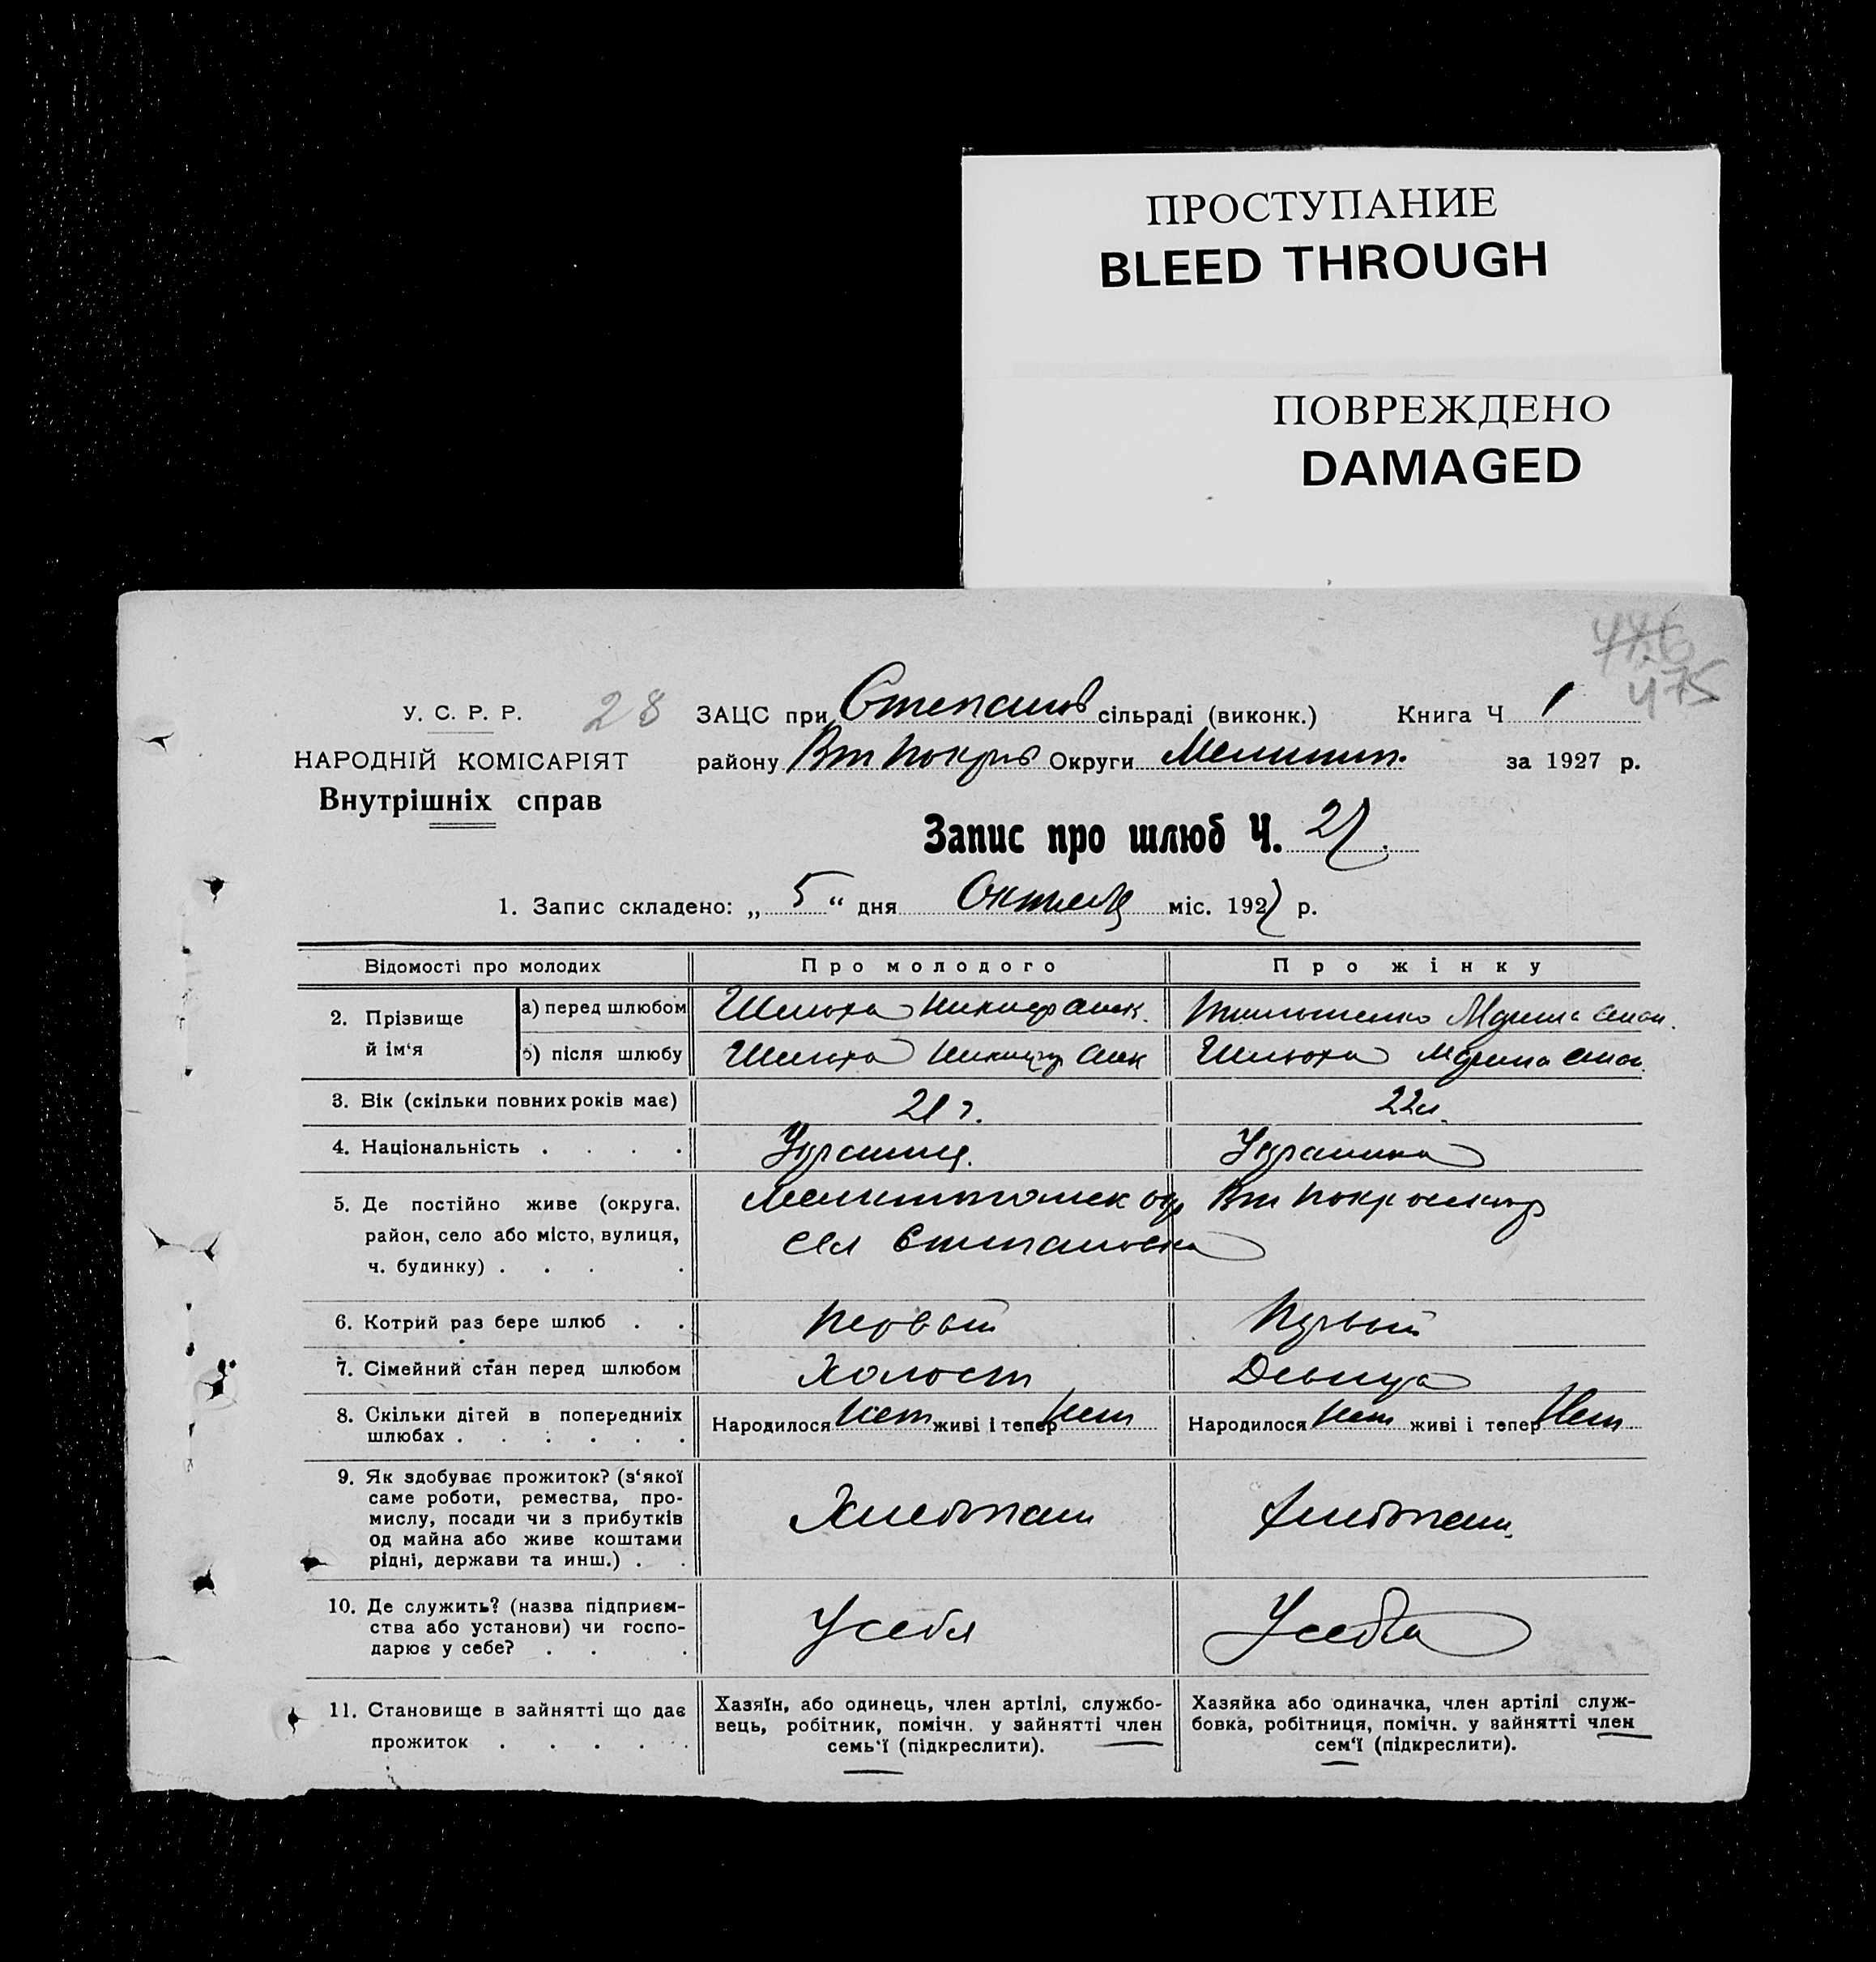 ПРОСТУПАНИЕ
BLEED THROUGH
ПОВРЕЖДЕНО
DAMAGED
446
475
У. С. Р. Р.
28
ЗАЦС при Степанов сільраді (виконк.) Книга Ч 1
НАРОДНІЙ КОМІСАРІЯТ
району Вт Покров Округи Мелитоп. за 1927 р.
Внутрішніх справ
Запис про шлюб Ч. 27.
1. Запис складено: „ 5 “ дня Октября міс. 1927 р.
Відомості про молодих Про молодого Про жінку
2. Прізвище й ім‘я
а) перед шлюбом Шелюха Никифор Алек. Марина
б) після шлюбу Шелюха Никифор Алек Шелюха Марина
3. Вік (скільки повних років має) 21 г. 22 л.
4. Національність . . . . Украинец. Украинка
5. Де постійно живе (округа, Мелитопольск окр Вт Покровск р
район, село або місто, вулиця, сел Степановка
ч. будинку) . . . .
6. Котрий раз бере шлюб . . Первый Первый
7. Сімейний стан перед шлюбом Холост Девица
8. Скільки дітей в попередниіх Народилося Нет живі і тепер Нет Народилося Нет живі і тепер Нет
шлюбах . . . . . .
9. Як здобуває прожиток? (з‘якої
саме роботи, ремества, про-
мислу, посади чи з прибутків Хлебопаш Хлебопаш.
од майна або живе коштами
рідні, держави та инш.) . .
10. Де служить? (назва підприєм-
ства або установи) чи госпо- У себя У себя
дарює у себе? . . .
11. Становище в зайнятті що дає
прожиток . . . . .
Хазяїн, або одинець, член артілі, службо-
вець, робітник, помічн. у зайнятті член
семь‘ї (підкреслити).
Хазяйка або одиначка, член артілі служ-
бовка, робітниця, помічн. у зайнятті член
сем‘ї (підкреслити).